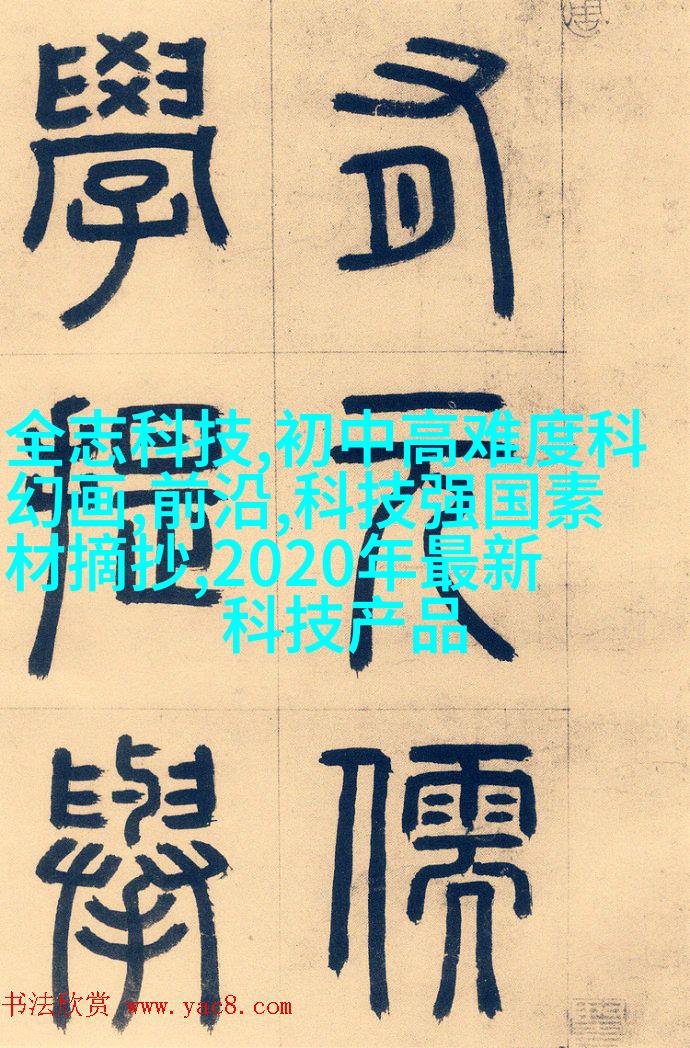 有元儒
學提舉
全志科技,初中高难度科
幻画,前沿,科技强国素
材摘抄,2020年最新
科技产品
书法欣赏 www.yac8.com